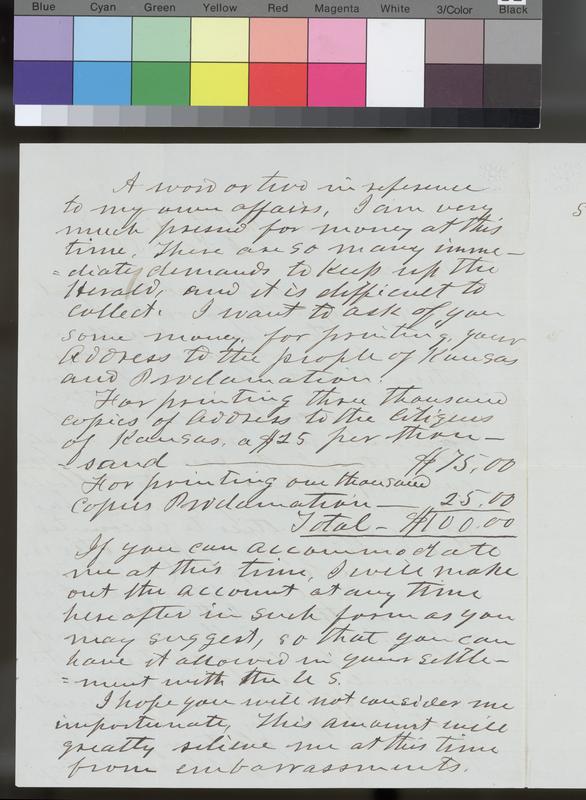 Blue Cyan Green Yellow Red Magenta White 3/Color Black
A word or two in reference
to my own affairs, I am very
much pressed for money at this
time. There are so many imme-
=diate demands to keep up the
Herald, and it is difficult to
collect. I want to ask of you
some money, for printing, your
Address to the people of Kansas
and Proclamation.
For printing three thousand
copies of Address to the Citizens
of Kansas, a $25 per thou-
-sand $75,00
For printing one thousand
copies Proclamation 25.00
Total - $100.00
If you can accommodate
me at this time, I will make
out the account at any time
hereafter in such form as you
may suggest, so that you can
have it allowed in your settle-
=ment with the U S.
I hope you will not consider me
importunate, This amount will
greatly relieve me at this time
from embarrassments.